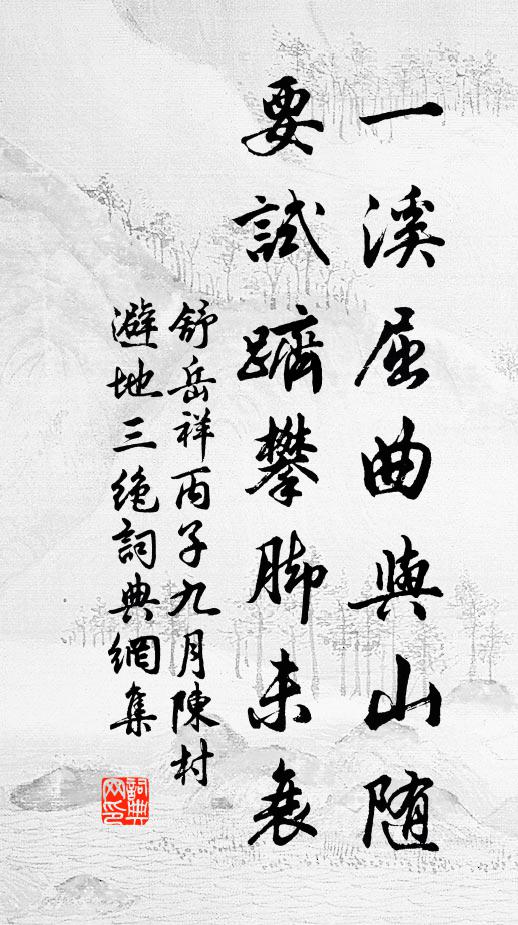 一溪屈曲與山随
要試躋攀脚未衰
舒岳祥丙子九月陳村
避地三绝詞典網集
詞典网印